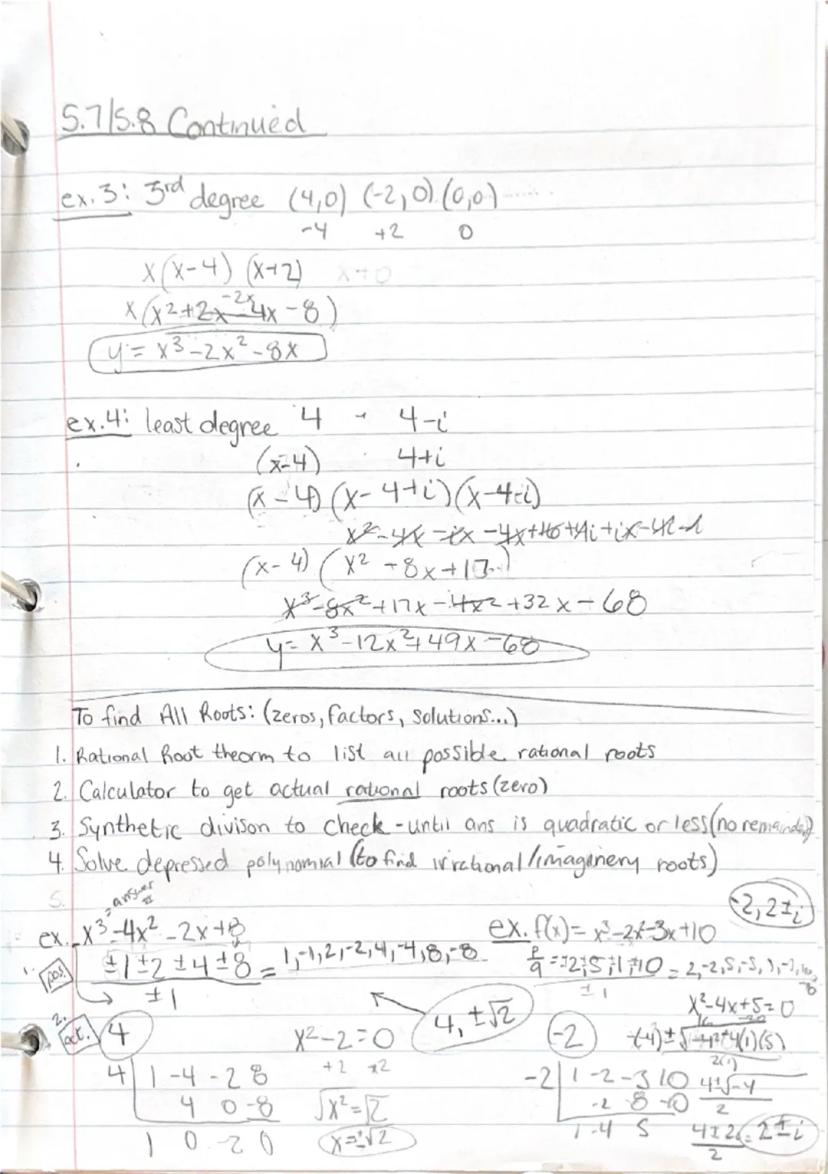 5.7/5.8 Continued
ex.3: 3rd degree (4,0) (-2,0) (0,0)
-4 +2 0
x(x-4) (x+2) x+0
x(x²+2x-4x-8) -2x
y = x³-2x²-8x
ex.4: least degree 4 4-i
(x-4) 4+i
(x-4)(x-4+i)(x-4-i)
x²-4x-ix-4x+16+4i+ix-4i-i
(x-4)(x²-8x+17)
x³-8x²+17x-4x²+32x-68
y= x³-12x²+49x-68
To find All Roots: (zeros, factors, solutions...)
1. Rational Root theorm to list all possible rational roots
2. Calculator to get actual rational roots (zero)
3. Synthetic divison to check - until ans is quadratic or less (no remainder)
4. Solve depressed polynomial (to find irrational/imaginery roots)
5.
= answer -2, 2±i
ex. x³-4x²-2x+8 ex. f(x)= x³-2x²-3x+10
1. pos. ±1±2±4±8 = 1,-1,2,-2,4,-4,8,-8 p/q = ±2,±5,±1,±10 = 2,-2,5,-5,1,-1,10
±1 ±1
4, ±√2 x²-4x+5=0
2. act. 4 x²-2=0 -2
+2 +2 2(1)
4 1 -4 -2 8 -2 1 -2 -3 10 4±√-4
4 0 -8 √x²=√2 -2 8 -10 2
1 0 -2 0 x=±√2 1 -4 5 4±2i/2 = 2±i